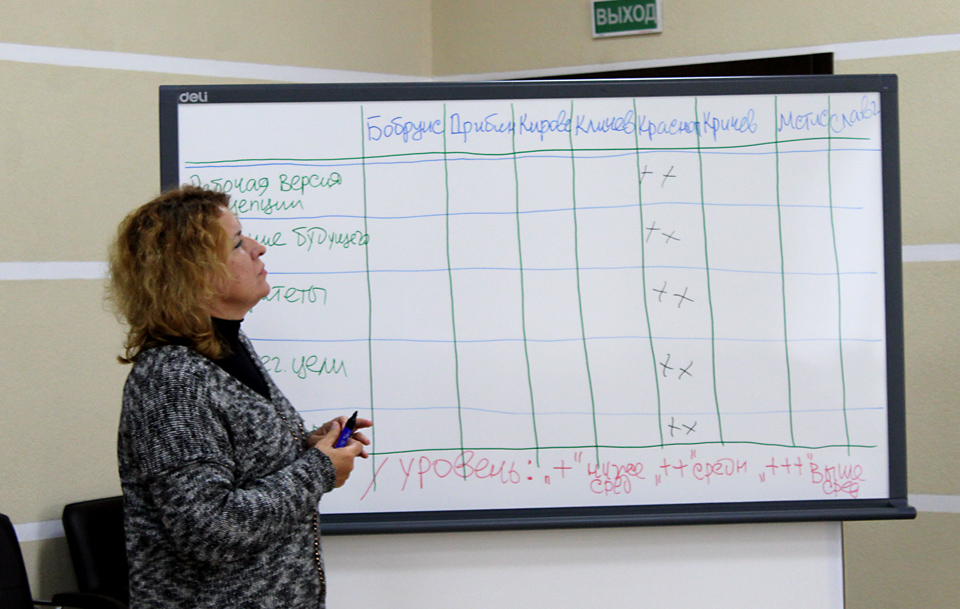 ВЫХОД
deli
Бобруис Дрибин Кирове Кличев Красноп Кричев Мстис Славг
Рабочая версия
цепции ++
ние будущего ++
теты ++
ег. цели ++
++
уровень: „+" ниже „++" средн „+++" выше
сред сред